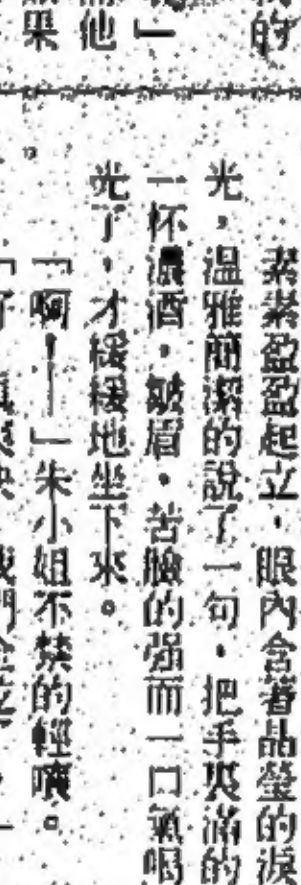 的
」
他
果
素素盈盈起立，眼內含着晶瑩的淚
光，溫雅簡潔的說了一句，把手裏滿的
一杯濃酒，皺眉，苦臉的強而一口氣喝
光了，才緩緩地坐下來。
「啊，——」朱小姐不禁的輕嘆。